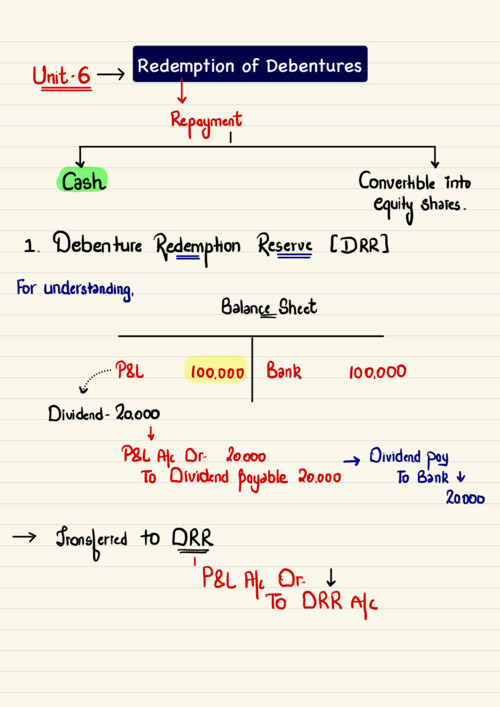 Unit-6 → Redemption of Debentures
Repayment
Cash
Convertible into
equity shares.
1. Debenture Redemption Reserve [DRR]
For understanding,
Balance Sheet
P&L 100,000 Bank 100,000
Dividend - 20,000
P&L A/c Dr. 20,000
To Dividend payable 20,000
→ Dividend pay
To Bank ↓
20000
→ Transferred to DRR
P&L A/c Dr. ↓
To DRR A/c